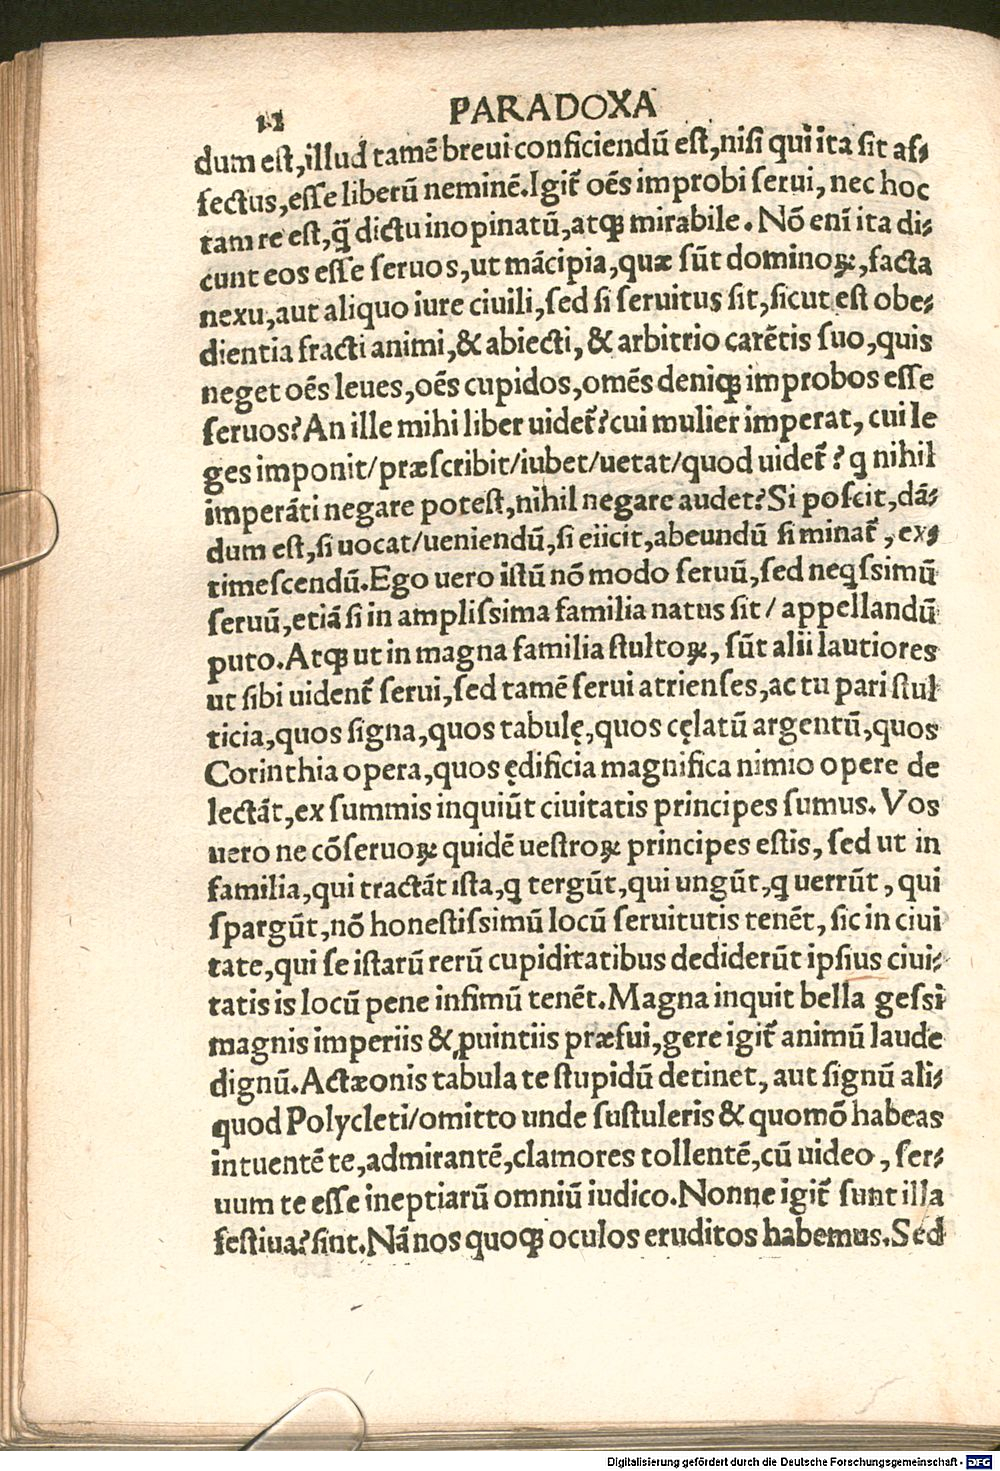 12 PARADOXA
dum est, illud tamē breui conficiendū est, nisi qui ita sit af⸗
fectus, esse liberū neminē. Igit᷑ oēs improbi serui, nec hoc
tam re est, q̄ dictu inopinatū, atqꝫ mirabile. Nō enī ita di⸗
cunt eos esse seruos, ut mācipia, quæ sūt dominoꝝ, facta
nexu, aut aliquo iure ciuili, sed si seruitus sit, sicut est obe⸗
dientia fracti animi, & abiecti, & arbitrio carētis suo, quis
neget oēs leues, oēs cupidos, omēs deniqꝫ improbos esse
seruos? An ille mihi liber uidet᷑? cui mulier imperat, cui le
ges imponit/præscribit/iubet/uetat/quod uidet᷑? ꝗ nihil
imperāti negare potest, nihil negare audet? Si poscit, dā⸗
dum est, si uocat/ueniendū, si eiicit, abeundū si minat᷑, ex⸗
timescendū. Ego uero istū nō modo seruū, sed neꝗssimū
seruū, etiā si in amplissima familia natus sit/appellandū
puto. Atqꝫ ut in magna familia stultoꝝ, sūt alii lautiores
ut sibi uident᷑ serui, sed tamē serui atrienses, ac tu pari stul
ticia, quos signa, quos tabulę, quos cęlatū argentū, quos
Corinthia opera, quos ędificia magnifica nimio opere de
lectāt, ex summis inquiūt ciuitatis principes sumus. Vos
uero ne cōseruoꝝ quidē uestroꝝ principes estis, sed ut in
familia, qui tractāt ista, ꝗ tergūt, qui ungūt, ꝗ uerrūt, qui
spargūt, nō honestissimū locū seruitutis tenēt, sic in ciui
tate, qui se istarū rerū cupiditatibus dediderūt ipsius ciui⸗
tatis is locū pene infimū tenēt. Magna inquit bella gessi
magnis imperiis & ꝓuintiis præfui, gere igit᷑ animū laude
dignū. Actæonis tabula te stupidū detinet, aut signū ali⸗
quod Polycleti/omitto unde sustuleris & quomō habeas
intuentē te, admirantē, clamores tollentē, cū uideo, ser⸗
uum te esse ineptiarū omniū iudico. Nonne igit᷑ sunt illa
festiua? sint. Nā nos quoqꝫ oculos eruditos habemus. Sed
Digitalisierung gefördert durch die Deutsche Forschungsgemeinschaft - DFG